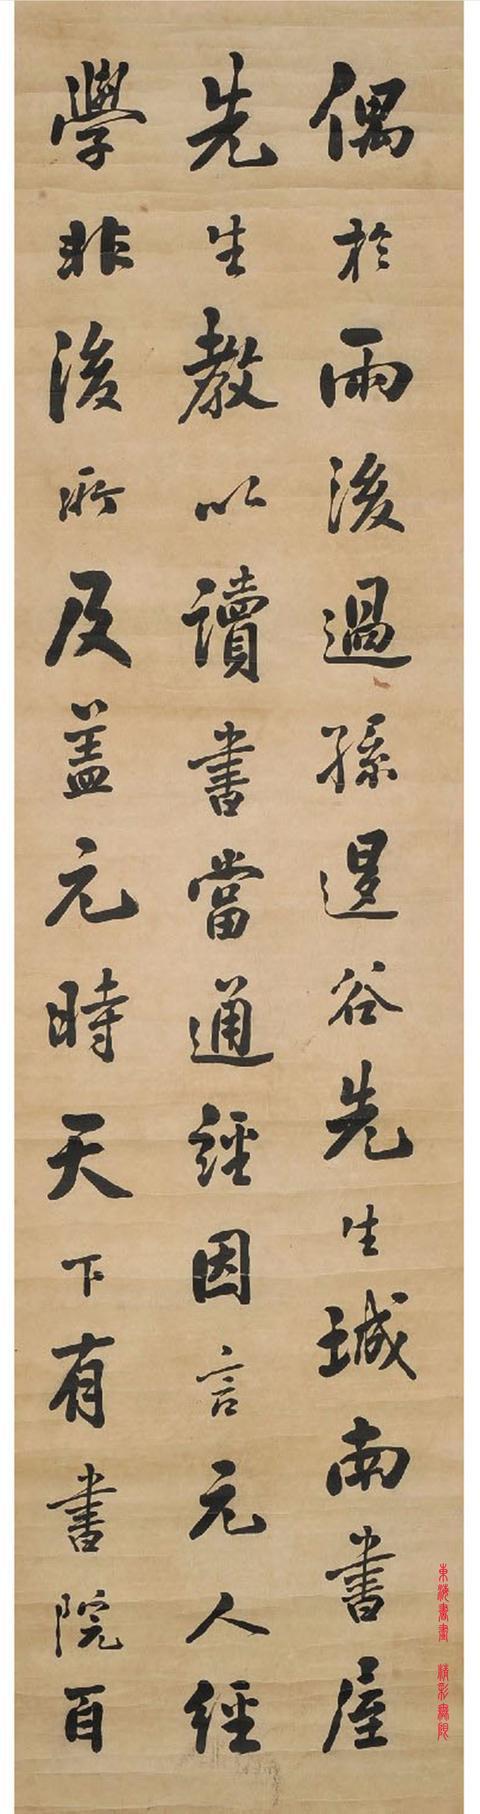 偶於雨後過孫退谷先生城南書屋
先生教以讀書當通經因言元人經
學非後所及盖元時天下有書院百
東海書畫 精彩無限